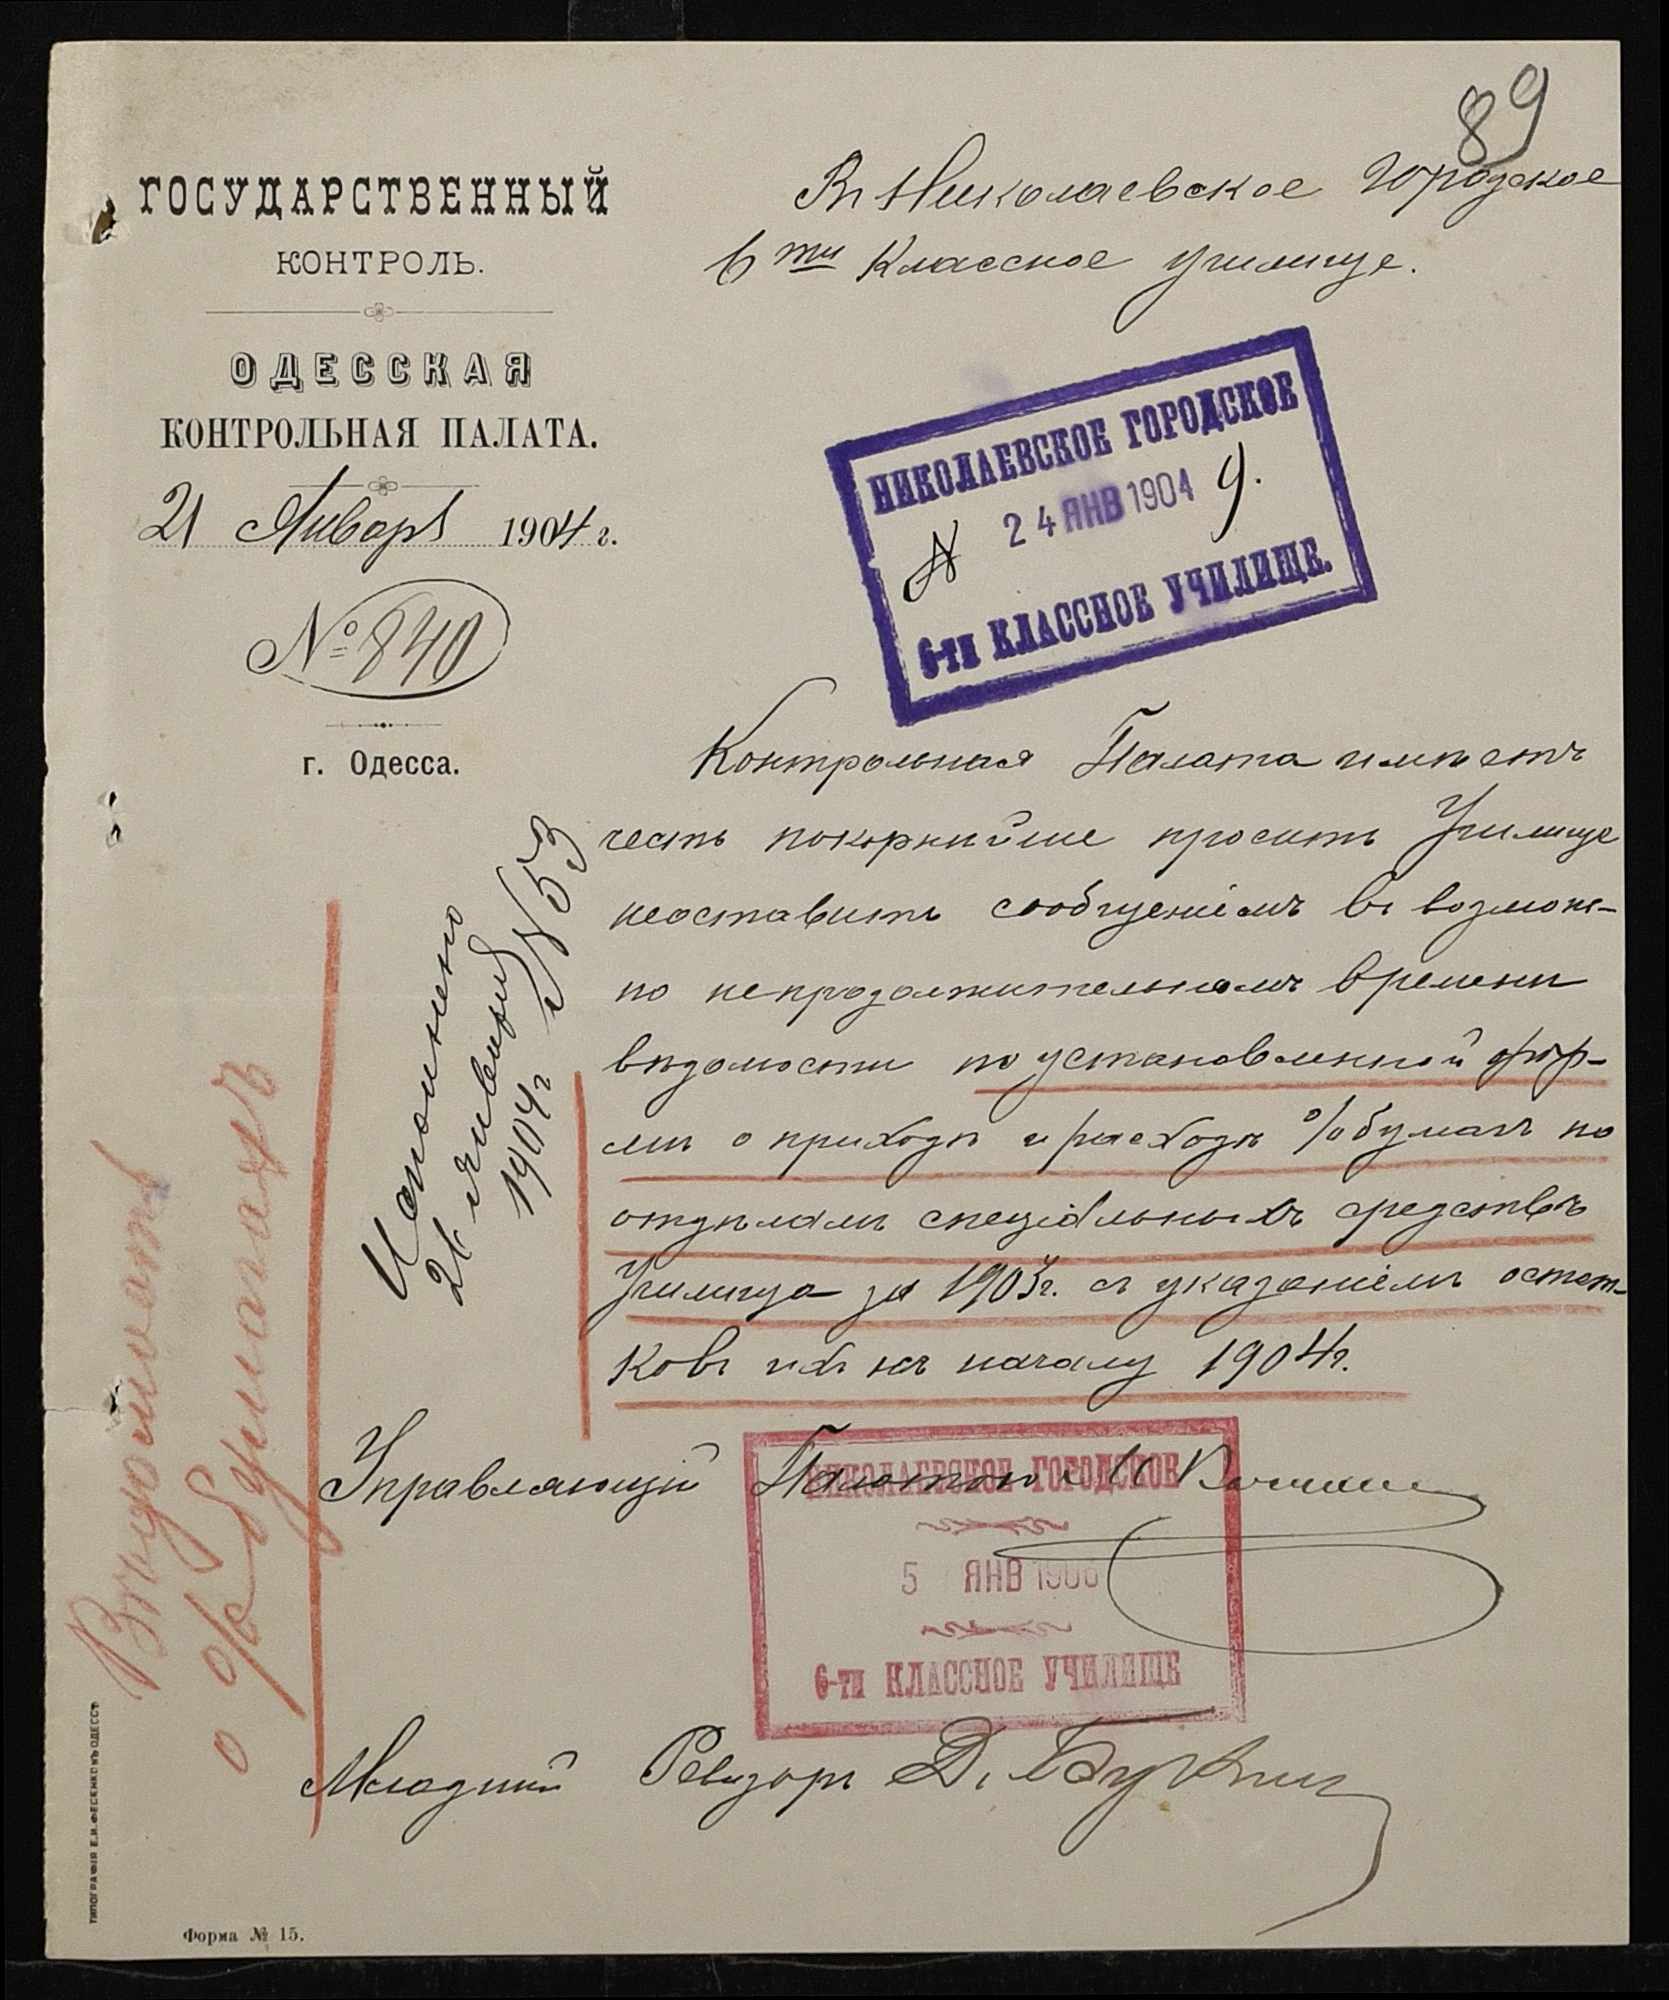 89
ГОСУДАРСТВЕННЫЙ
КОНТРОЛЬ.
ОДЕССКАЯ
КОНТРОЛЬНАЯ ПАЛАТА.
21 Января 1904 г.
№ 840
г. Одесса.
Въ Николаевское Городское
6ти Классное училище.
НИКОЛАЕВСКОЕ ГОРОДСКОЕ
24 ЯНВ 1904
6-ТИ КЛАССНОЕ УЧИЛИЩЕ.
Контрольная Палата имѣетъ
честь покорнѣйше просить Училище
неоставить сообщеніемъ въ возмож-
но непродолжительномъ времени
вѣдомости по установленной фор-
мѣ о приходѣ и расходѣ % бумагъ по
отдѣламъ спеціальныхъ средствъ
Училища за 1903г. съ указаніемъ остат-
ковъ ихъ къ началу 1904г.
Исполнено
26 Января
1904 г № 53
Вѣдомость
о % бумагахъ
Управляющій Палатою
НИКОЛАЕВСКОЕ ГОРОДСКОЕ
5 ЯНВ 1906
6-ТИ КЛАССНОЕ УЧИЛИЩЕ
Младшій Ревизоръ Д.
ТИПОГРАФІЯ Е.И.ФЕСЕНКО ВЪ ОДЕССѢ
Форма № 15.